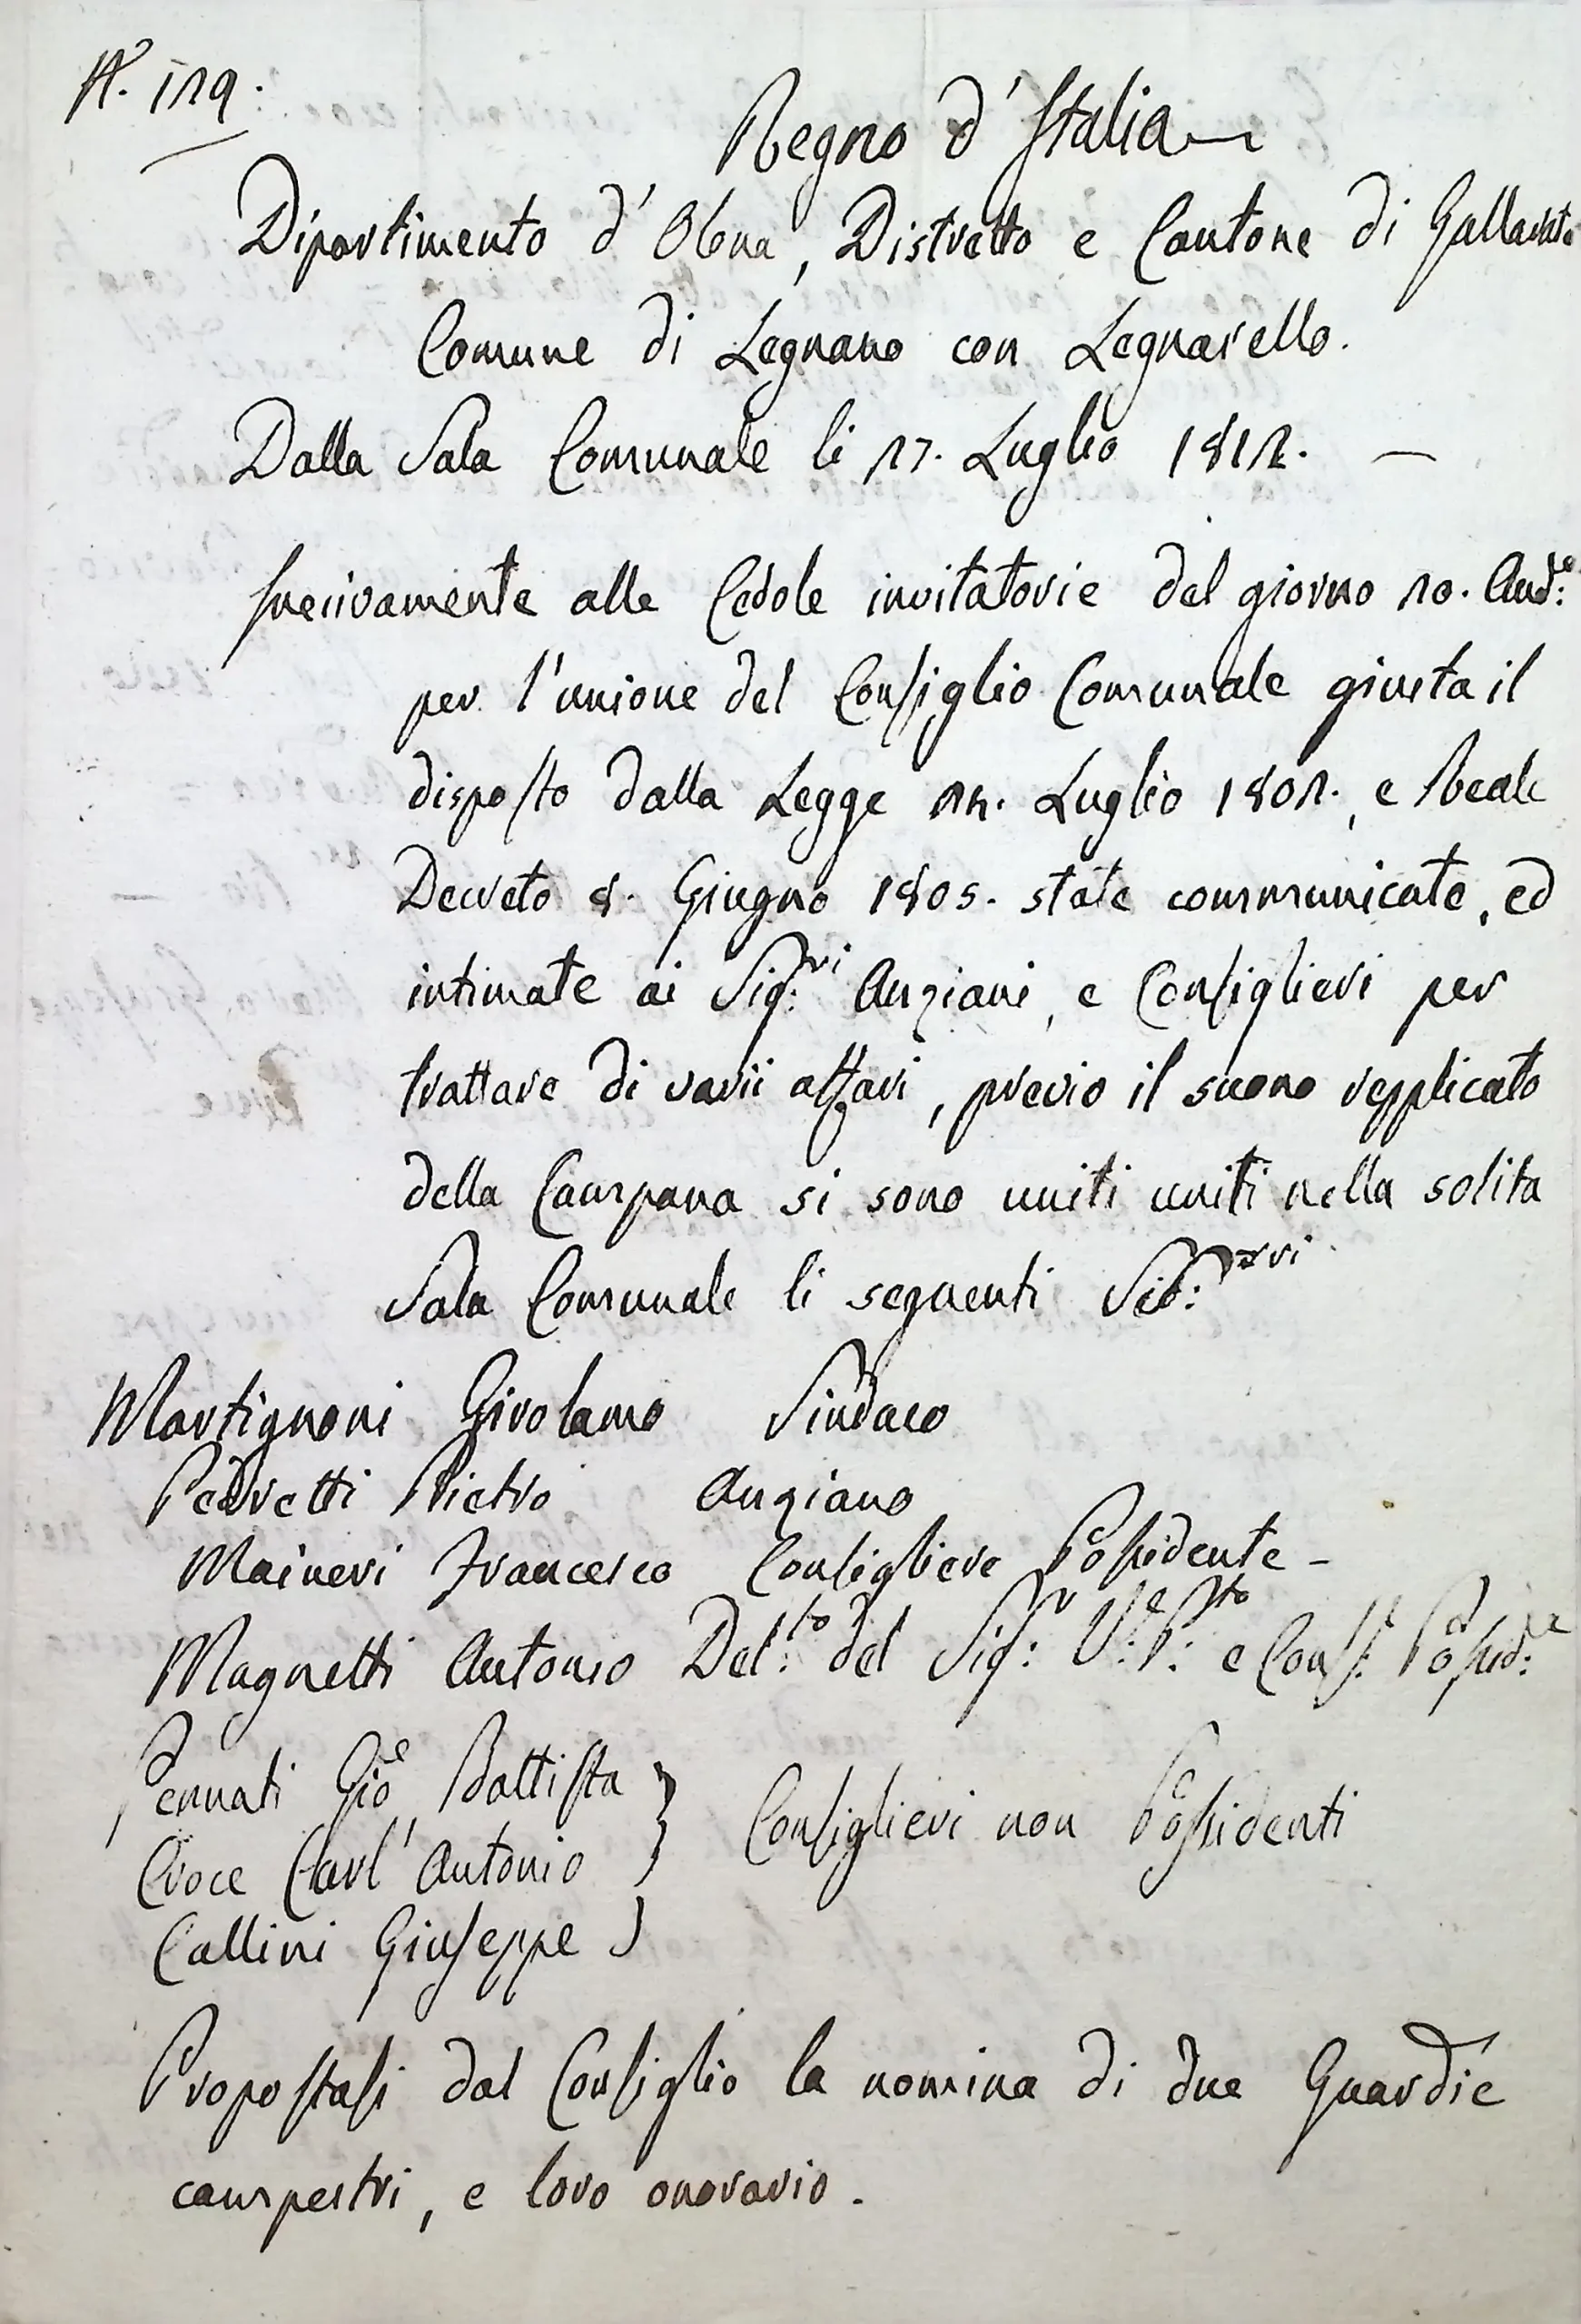 N.° 129.
Regno d'Italia
Dipartimento d'Olona, Distretto e Cantone di Gallarate
Comune di Legnano con Legnarello.
Dalla Sala Comunale li 27. Luglio 1812. —
alle Cedole invitatorie del giorno 20. And.e
per l'unione del Consiglio Comunale giusta il
disposto dalla Legge 24. Luglio 1802., e Reale
Decreto 8. Giugno 1805. state communicate, ed
intimate ai Sig.ri Anziani, e Consiglieri per
trattare di varii affari, previo il suono repplicato
della Campana si sono uniti uniti nella solita
Sala Comunale li seguenti Sig.ri
Martignoni Girolamo Sindaco
Pedretti Pietro Anziano
Maineri Francesco Consigliere Possidente -
Magnetti Antonio Del.to del Sig.r V.e P.sto e Cons.e Possid.e
Pennati Gio Battista
Croce Carl'Antonio } Consiglieri non Possidenti
Callini Giuseppe
Propostasi dal Consiglio la nomina di due Guardie
campestri, e loro onorario.